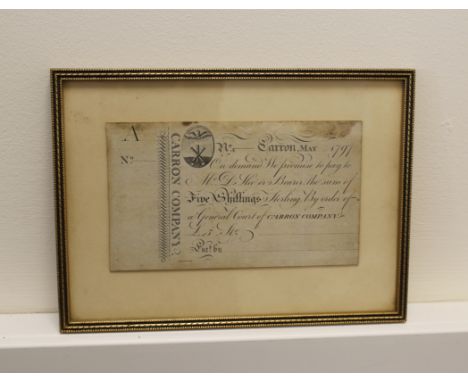 A
No.
CARRON COMPANY.
No. Carron, May 1797
On demand We promise to pay to
Mr. D. or Bearer, the sum of
Five Shillings Sterling. By order of
a General Court of CARRON COMPANY.
£ 5 Str.
Ent.d by